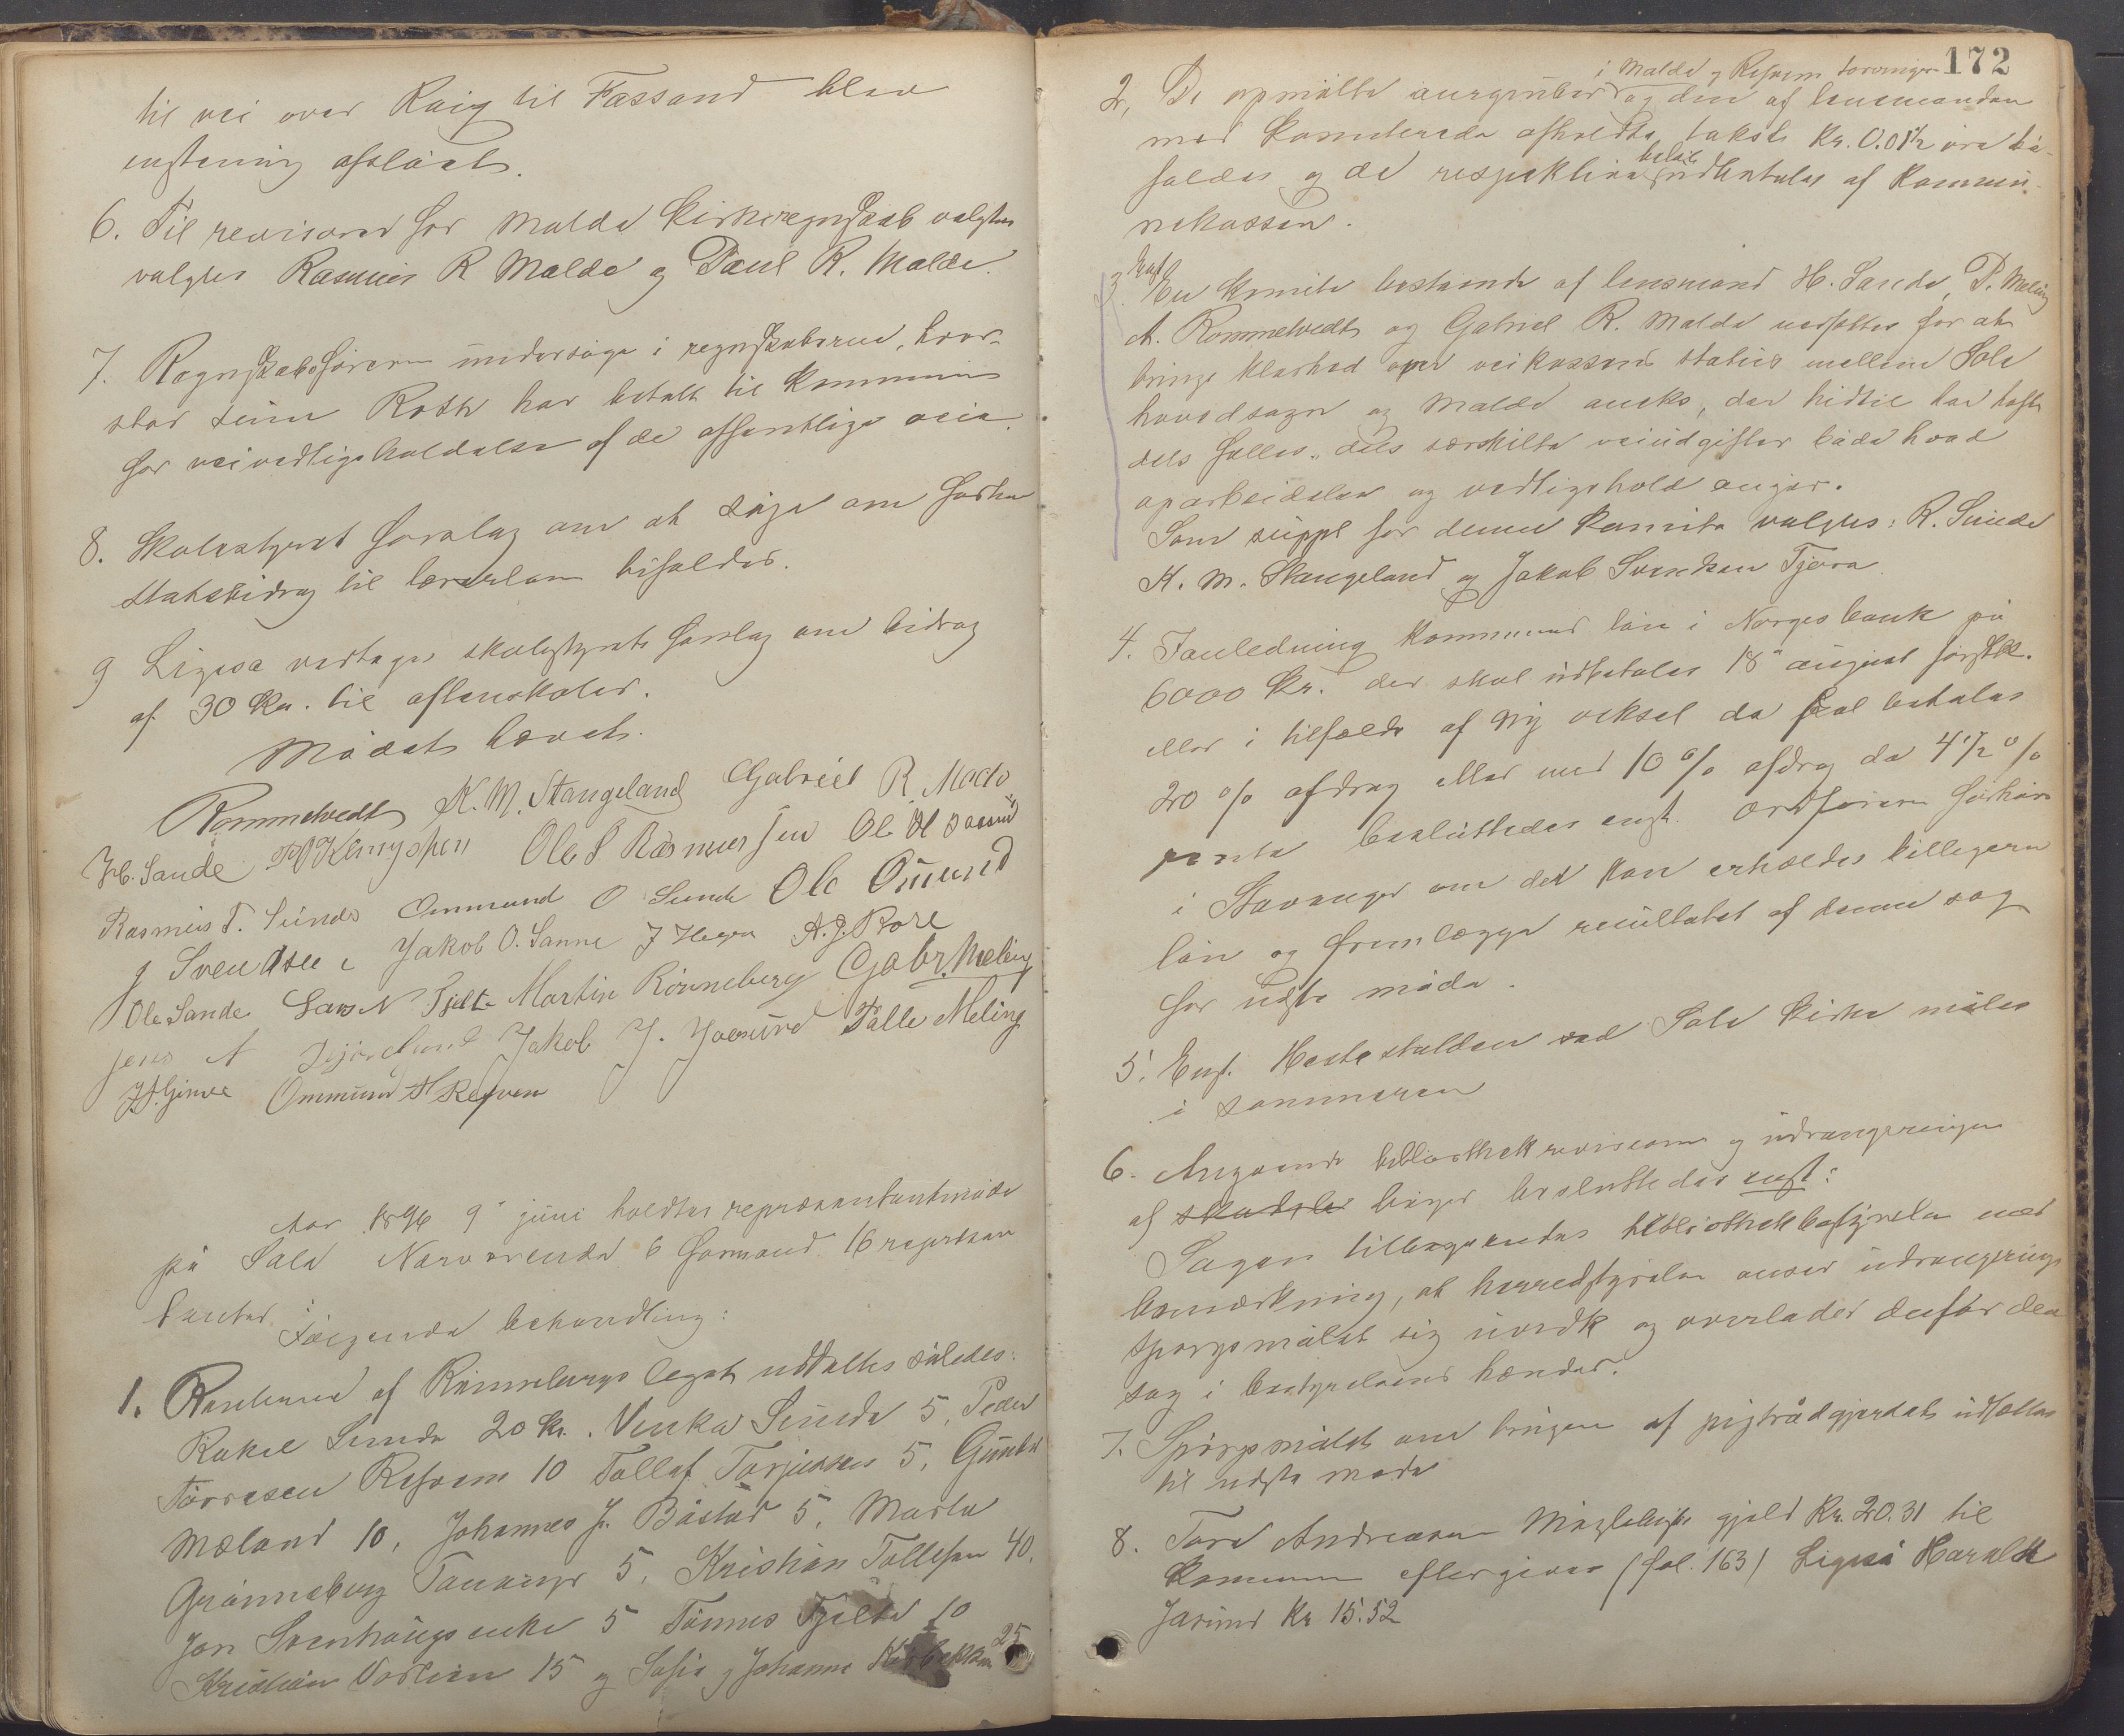 til vei over Raig til Fassand blev
enstemig afslaaet.
6. Til revisorer for Malde Kirkeregnskab valgtes
valgtes Rasmus R Malde og Paul R. Malde.
7. Regnskabsføreren undersøge i regnskaberne, hvor-
stor sum Roth har betalt til Kommunen
for veivedligeholdelse af de offentlige veie.
8. Skolestyret forslag om at søge om
statsbidrag til lærerløn bifaldes.
9 Ligesa vedtages skolestyrets forslag om bidrag
af 30 Kr. til aftenskoler.
Mødet hævet.
Rommetvedt K. M. Stangeland Gabriel R. Malde
H. Sande Ole S Rasmussen
Rasmus T. Sunde Ommund O Sunde Ole Ommund
J Svendsen Jakob O. Sanne J A. J. Røre
Ole Sande Lars N Tjelte Martin Rønneberg Gabr. Meling
Jens A Jakob J. Joasund Tølle Meling
Ommund H Refven
Aar 1896 9de juni holdtes repræsentantmøde
på Sola Nærværende 6 formænd 16 repræsen
tanter.
Følgende behandling:
1. Renterne af Rønnebergs legat uddeltes således:
Rakel Sunde 20 Kr. Venka Sunde 5, Peder
Tørresen Refsem 10 Tollef Torjussen 5,
Mæland 10, Johannes J. Båstad 5, Marta
Grannaberg Tananger 5, Kristian Tollefsen 40,
Jon Svenhougs enke 5 Tønnes Tjelta 10
Kristian 15 og Sofie og Johanne 25
172
i Malde og Refsem
2, De opmålte aurgruber og den af lensmanden
med Kamerede afholdte takst Kr. 0.01½ øre bi-
faldes og de respektive beløb udbetales af Kommu-
nekassen.
3. Enst En Komite bestaaende af lensmand H. Sande, P. Meling
A. Rommetvedt og Gabriel R. Malde nedsattes for at
bringe klarhed over veikassens status mellem Sole
hovedsogn og Malde aneks, der hidtil har havt
dels fælles, dels særskilte veiudgifter både hvad
oparbeidelse og vedligehold angår.
Som suppl for denne Komite valgtes: R. Sunde
K. M. Stangeland og Jakob Svendsen Tjøra
4. I anledning Kommunens lån i Norges bank på
6000 Kr. der skal udbetales 18de august førstk.
eller i tilfælde af ny veksel da skal betales
20 % afdrag eller med 10 % afdrag da 4½ %
rente besluttedes enst. ordføreren forhøre
i Stavanger om det kan erholdes billigere
lån og fremlægge resultatet af denne sag
for næste møde.
5. Enst. Hestestalden ved Sole Kirke males
i sommeren
6. Angående bibliothek revisionen og udrangeringen
af skadede bøger besluttedes enst:
Sagen tilbagesendes bibliothekbestyrelsen med
bemærkning, at herredstyrelsen anser udrangerings
spørgsmålet sig uvedk og overlader derfor den
sag i bestyrelsens hænder.
7. Spørgsmålet om brugen af pigtrådgjerdet udsættes
til næste møde
8. Tore Andreasen Myklebust gjeld Kr. 20.31 til
Kommunen eftergives (fol. 163) Ligeså Harald
Jåsund Kr 15.52